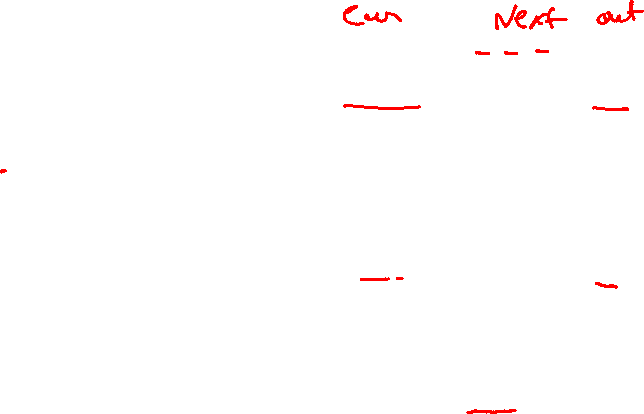 Curr Next out